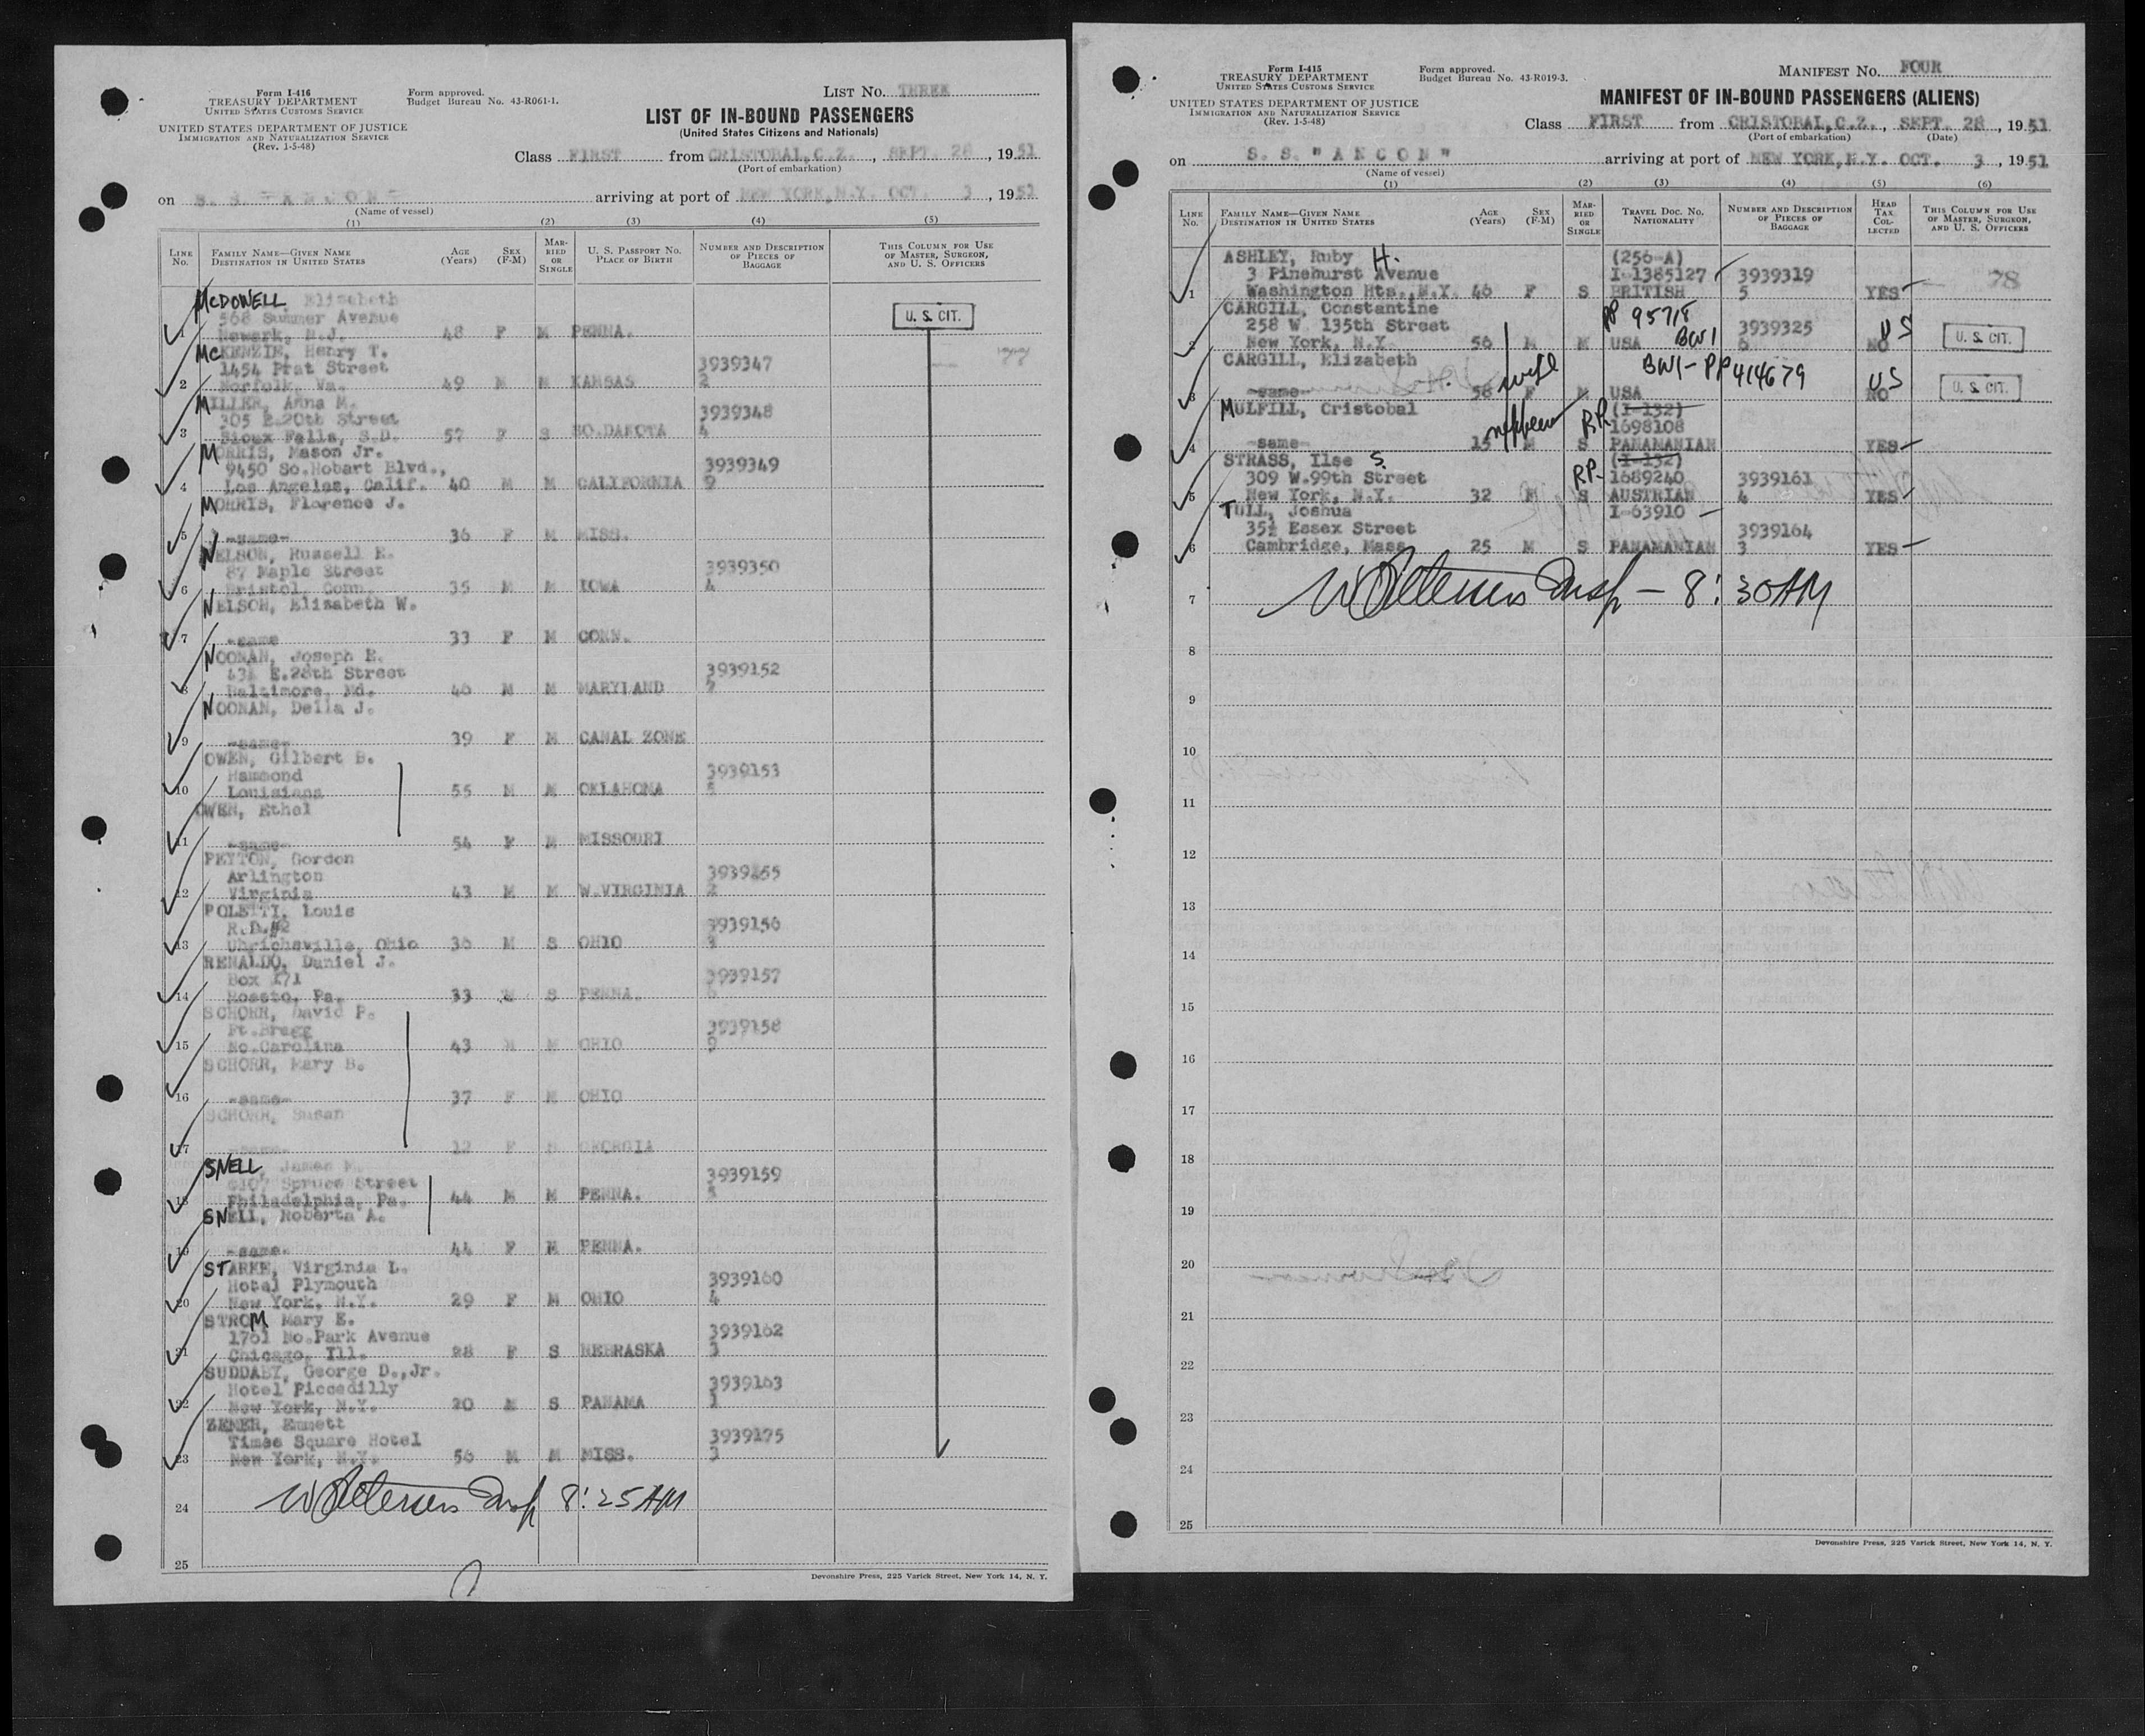 Form I-416
TREASURY DEPARTMENT
UNITED STATES CUSTOMS SERVICE
UNITED STATES DEPARTMENT OF JUSTICE
IMMIGRATION AND NATURALIZATION SERVICE
(Rev. 1-5-48)
Form approved.
Budget Bureau No. 43-R061-1.
LIST No. THREE
LIST OF IN-BOUND PASSENGERS
(United States Citizens and Nationals)
Class FIRST from CRISTOBAL, C.Z., SEPT. 28, 1951
(Port of embarkation)
on S. S. "ANCON" arriving at port of NEW YORK, N.Y. OCT. 3, 1951
(Name of vessel)
(1) (2) (3) (4) (5)
LINE No. FAMILY NAME—GIVEN NAME DESTINATION IN UNITED STATES AGE (Years) SEX (F-M) MARRIED OR SINGLE U. S. PASSPORT No. PLACE OF BIRTH NUMBER AND DESCRIPTION OF PIECES OF BAGGAGE THIS COLUMN FOR USE OF MASTER, SURGEON, AND U. S. OFFICERS
McDOWELL, Elizabeth
568 Summer Avenue U. S. CIT.
1 Newark, N.J. 48 F M PENNA.
McKENZIE, Henry T.
1454 Prat Street 3939347
2 Norfolk, Va. 49 M M KANSAS 2
MILLER, Anna M.
305 E.20th Street 3939348
3 Sioux Falls, S.D. 57 F S SO.DAKOTA 4
MORRIS, Mason Jr.
9450 So.Hobart Blvd., 3939349
4 Los Angeles, Calif. 40 M M CALIFORNIA 9
MORRIS, Florence J.
5 -same- 36 F M MISS.
NELSON, Russell E.
87 Maple Street 3939350
6 Bristol, Conn. 35 M M IOWA 4
NELSON, Elizabeth W.
7 -same 33 F M CONN.
NOONAN, Joseph E.
E.28th Street 3939152
8 Baltimore, Md. 46 M M MARYLAND
NOONAN, Della J.
9 -same- 39 F M CANAL ZONE
OWEN, Gilbert B.
Hammond 3939153
10 Louisiana 55 M M OKLAHOMA
OWEN, Ethel
11 -same- 54 F M MISSOURI
PEYTON, Gordon
Arlington 3939155
12 Virginia 43 M M W.VIRGINIA 2
POLETTI, Louis
R.D.#2 3939156
13 Uhrichsville, Ohio 36 M S OHIO 3
RENALDO, Daniel J.
Box 171 3939157
14 Roseto, Pa. 33 M S PENNA.
SCHORR, David P.
Ft.Bragg 3939158
15 No.Carolina 43 M M OHIO 9
SCHORR, Mary B.
16 -same- 37 F M OHIO
SCHORR, Susan
17 -same- 12 F S GEORGIA
SNELL, James M.
Spruce Street 3939159
18 Philadelphia, Pa. 44 M M PENNA.
SNELL, Roberta A.
19 -same- 44 F M PENNA.
STARKE, Virginia L.
Hotel Plymouth 3939160
20 New York, N.Y. 29 F M OHIO 4
STROM Mary E.
1761 No.Park Avenue 3939162
21 Chicago, Ill. 28 F S NEBRASKA 3
SUDDABY, George D.,Jr.
Hotel Piccadilly 3939163
22 New York, N.Y. 20 M S PANAMA 1
ZENER, Emmett
Times Square Hotel 3939175
23 New York, N.Y. 56 M M MISS. 3
24 Insp 8:25 AM
25
Devonshire Press, 225 Varick Street, New York 14, N. Y.
Form I-415
TREASURY DEPARTMENT
UNITED STATES CUSTOMS SERVICE
UNITED STATES DEPARTMENT OF JUSTICE
IMMIGRATION AND NATURALIZATION SERVICE
(Rev. 1-5-48)
Form approved.
Budget Bureau No. 43-R019-3.
MANIFEST No. FOUR
MANIFEST OF IN-BOUND PASSENGERS (ALIENS)
Class FIRST from CRISTOBAL, C.Z., SEPT. 28, 1951
(Port of embarkation) (Date)
on S. S. "ANCON" arriving at port of NEW YORK, N.Y. OCT. 3, 1951
(Name of vessel)
(1) (2) (3) (4) (5) (6)
LINE No. FAMILY NAME—GIVEN NAME DESTINATION IN UNITED STATES AGE (Years) SEX (F-M) MARRIED OR SINGLE TRAVEL DOC. No. NATIONALITY NUMBER AND DESCRIPTION OF PIECES OF BAGGAGE HEAD TAX COLLECTED THIS COLUMN FOR USE OF MASTER, SURGEON, AND U. S. OFFICERS
ASHLEY, Ruby H. (256-A)
3 Pinehurst Avenue I-1385127 3939319 78
1 Washington Hts., N.Y. 46 F S BRITISH 5 YES
CARGILL, Constantine PP 95718
258 W 135th Street 3939325 US U. S. CIT.
2 New York, N.Y. 56 M M USA BWI 6 NO
CARGILL, Elizabeth wife BWI-PP414679 US U. S. CIT.
3 -same- 58 F M USA NO
MULFILL, Cristobal nephew RP (I-132)
1698108
4 -same- 15 M S PANAMANIAN YES
STRASS, Ilse S. (I-132)
309 W.99th Street RP- 1689240 3939161
5 New York, N.Y. 32 F S AUSTRIAN 4 YES
TULL, Joshua I-63910
35½ Essex Street 3939164
6 Cambridge, Mass. 25 M S PANAMANIAN 3 YES
7 Insp - 8:30 AM
8
9
10
11
12
13
14
15
16
17
18
19
20
21
22
23
24
25
Devonshire Press, 225 Varick Street, New York 14, N. Y.